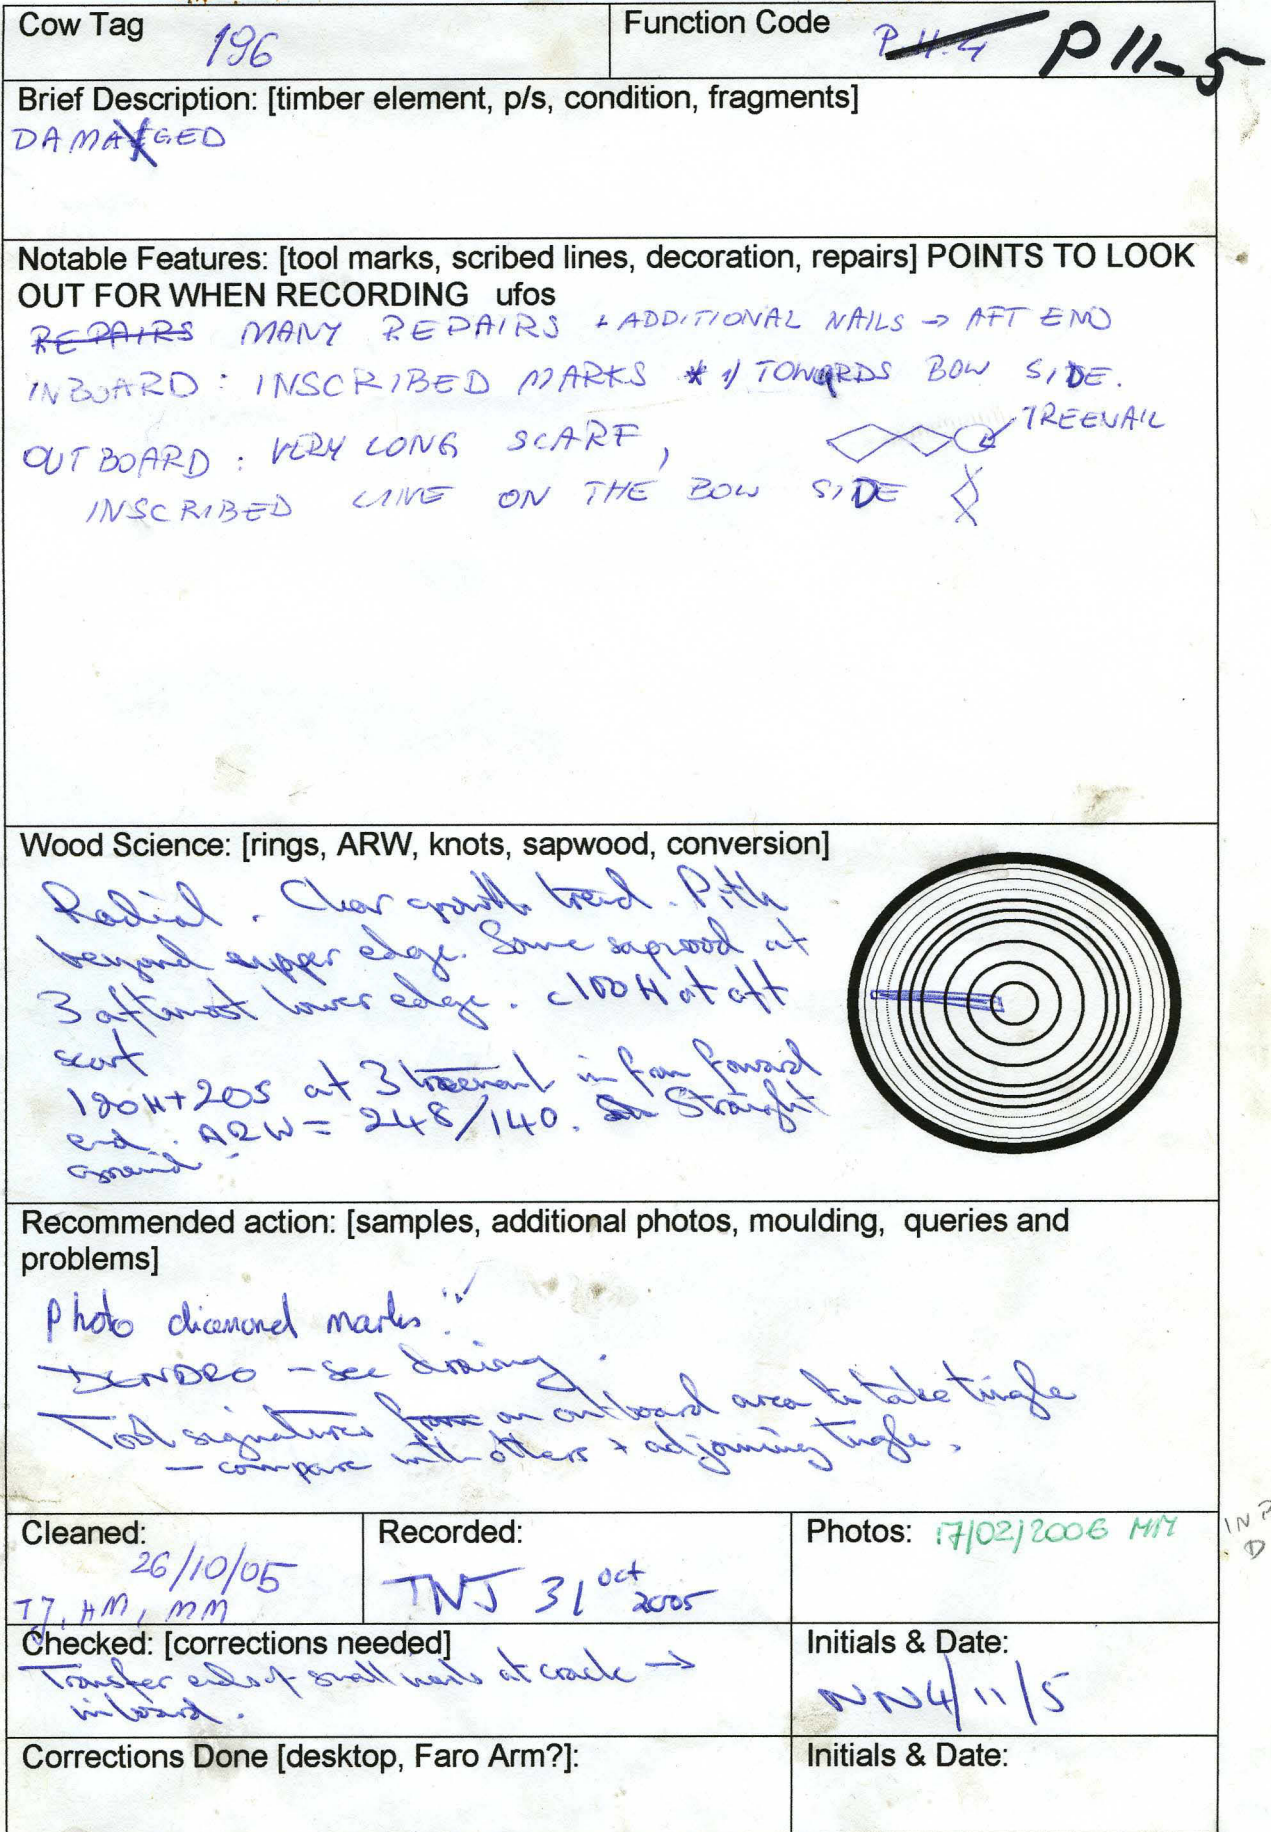 Cow Tag 196 Function Code P 11.4 P 11-5
Brief Description: [timber element, p/s, condition, fragments]
DAMAGED
Notable Features: [tool marks, scribed lines, decoration, repairs] POINTS TO LOOK
OUT FOR WHEN RECORDING ufos
REPAIRS MANY REPAIRS + ADDITIONAL NAILS → AFT END
INBOARD : INSCRIBED MARKS * 1) TOWARDS BOW SIDE.
TREENAIL
OUTBOARD : VERY LONG SCARF,
INSCRIBED LINE ON THE BOW SIDE
Wood Science: [rings, ARW, knots, sapwood, conversion]
Radial. Clear growth trend. Pith
beyond upper edge. Some sapwood at
3 aftmost lower edge. c100H at aft
scarf
120H+20S at 3 treenail in from forward
end. ARW = 248/140. Straight
grained.
Recommended action: [samples, additional photos, moulding, queries and
problems]
Photo diamond marks
DENDRO - see drawing.
Tool signatures from on outboard area to take tingle
- compare with others + adjoining tingle.
Cleaned: Recorded: Photos: 17/02/2006 MM
26/10/05
TJ, HM, MM
TNJ 31 Oct 2005
Checked: [corrections needed] Initials & Date:
Transfer ends of small nails at crack →
inboard.
NN 4/11/5
Corrections Done [desktop, Faro Arm?]: Initials & Date: